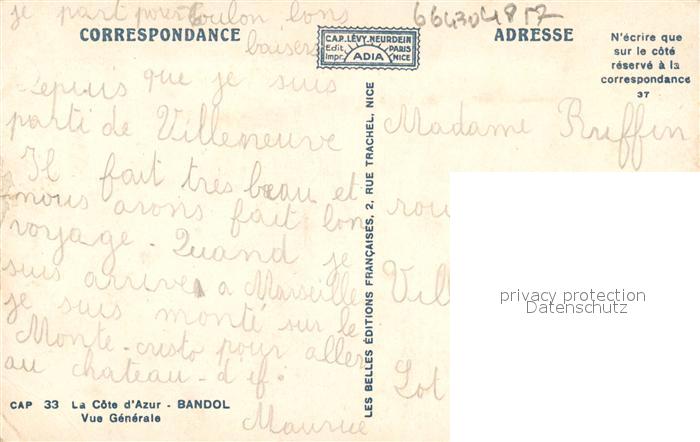 je part pour toulon bons
baisers
664304817
CORRESPONDANCE
CAP. LÉVY-NEURDEIN
Edit. PARIS
Impr. ADIA NICE
ADRESSE
N'écrire que
sur le côté
réservé à la
correspondance
37
Depuis que je suis
parti de Villeneuve
Il fait tres beau et
nous avons fait bon
voyage - Quand je
suis arrivé a Marseille
je suis monté sur le
Monte-cristo pour aller
au chateau-d'if.
Maurice
LES BELLES ÉDITIONS FRANÇAISES, 2, RUE TRACHEL, NICE
Madame Ruffin
rou
Vill
Lot
privacy protection
Datenschutz
CAP 33 La Côte d'Azur - BANDOL
Vue Générale